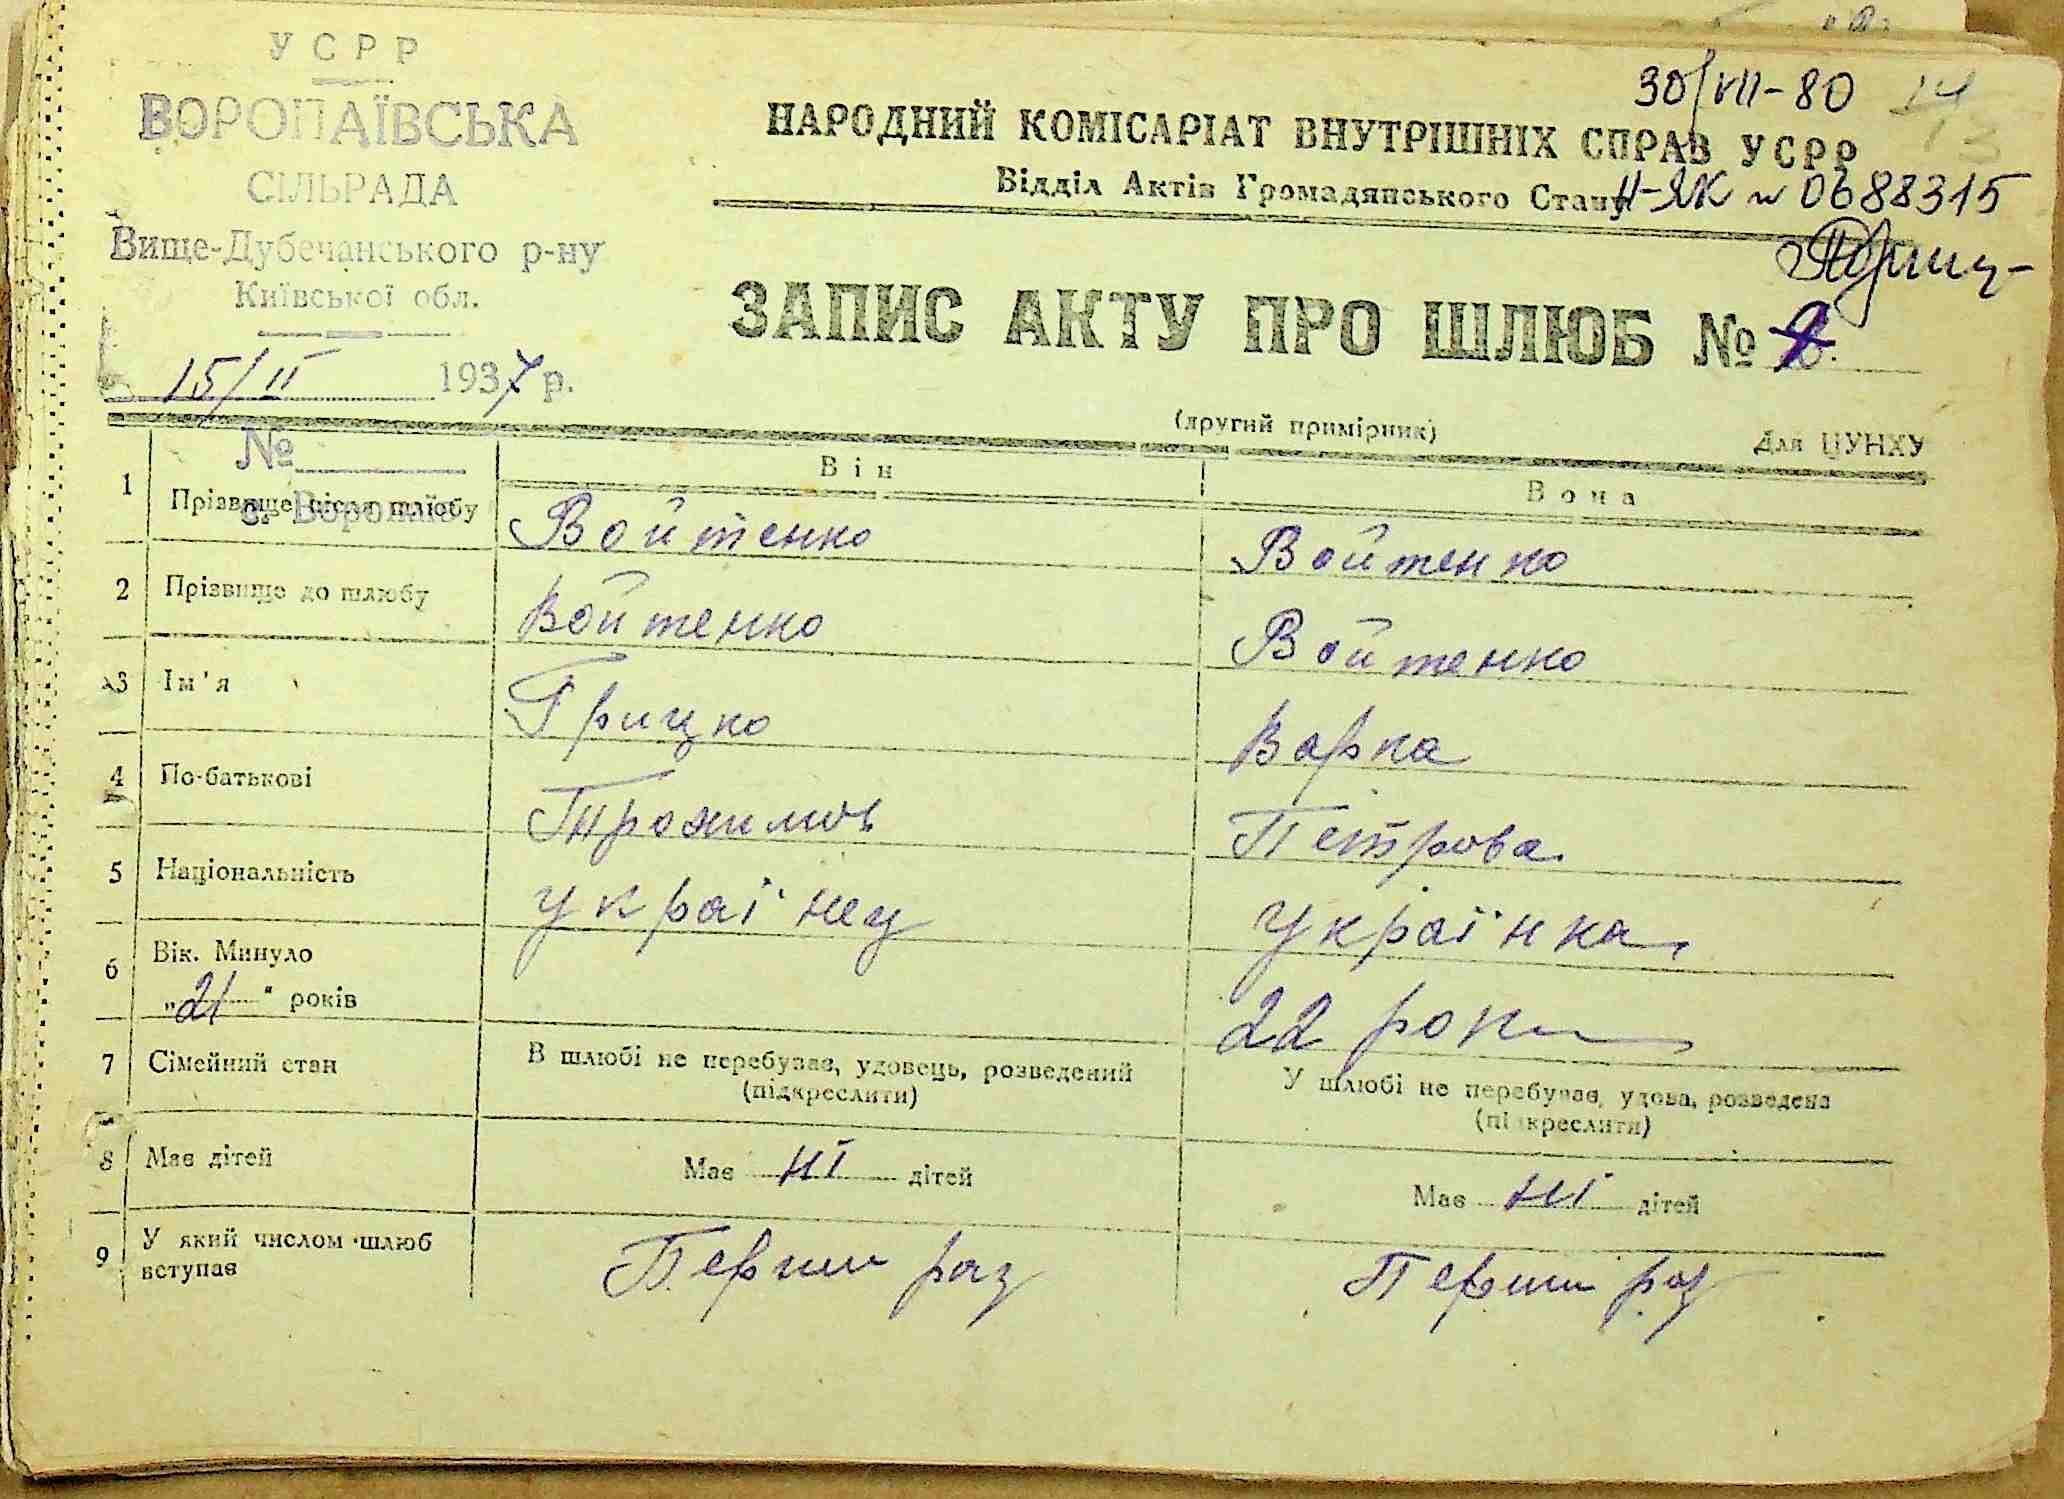 УСРР
ВОРОПАЇВСЬКА
СІЛЬРАДА
Вище-Дубечанського р-ну
Київської обл.
15/II 1937 р.
№
с. Воропаїв
30/VII-80
14
13
НАРОДНИЙ КОМІСАРІАТ ВНУТРІШНІХ СПРАВ УСРР
Відділ Актів Громадянського Стану
II-ЯК № 0688315
ЗАПИС АКТУ ПРО ШЛЮБ №
(другий примірник)
Для ЦУНХУ
Він Вона
1 Прізвище після шлюбу Войтенко Войтенко
2 Прізвище до шлюбу Войтенко Войтенко
3 Ім'я Грицко Варка
4 По-батькові Трохимов Петрова
5 Національність Українец Українка
6 Вік. Минуло
„21" років 22 роки
7 Сімейний стан В шлюбі не перебуває, удовець, розведений У шлюбі не перебуває, удова, розведена
(підкреслити) (підкреслити)
8 Має дітей Має ні дітей Має ні дітей
9 У який числом шлюб Перши раз Перши раз
вступає